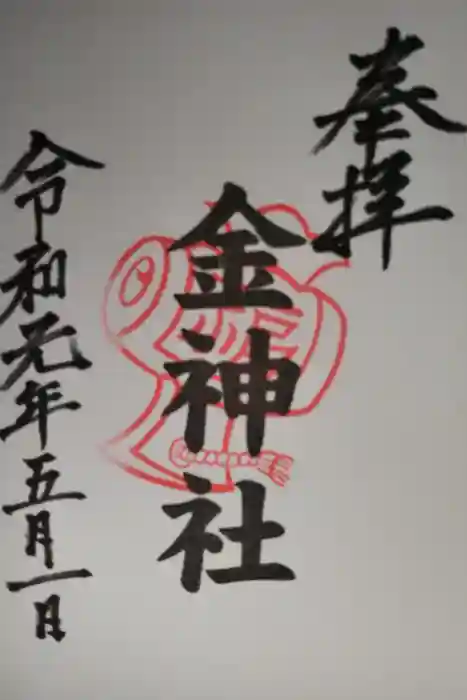 奉拝
金神社
令和元年五月一日